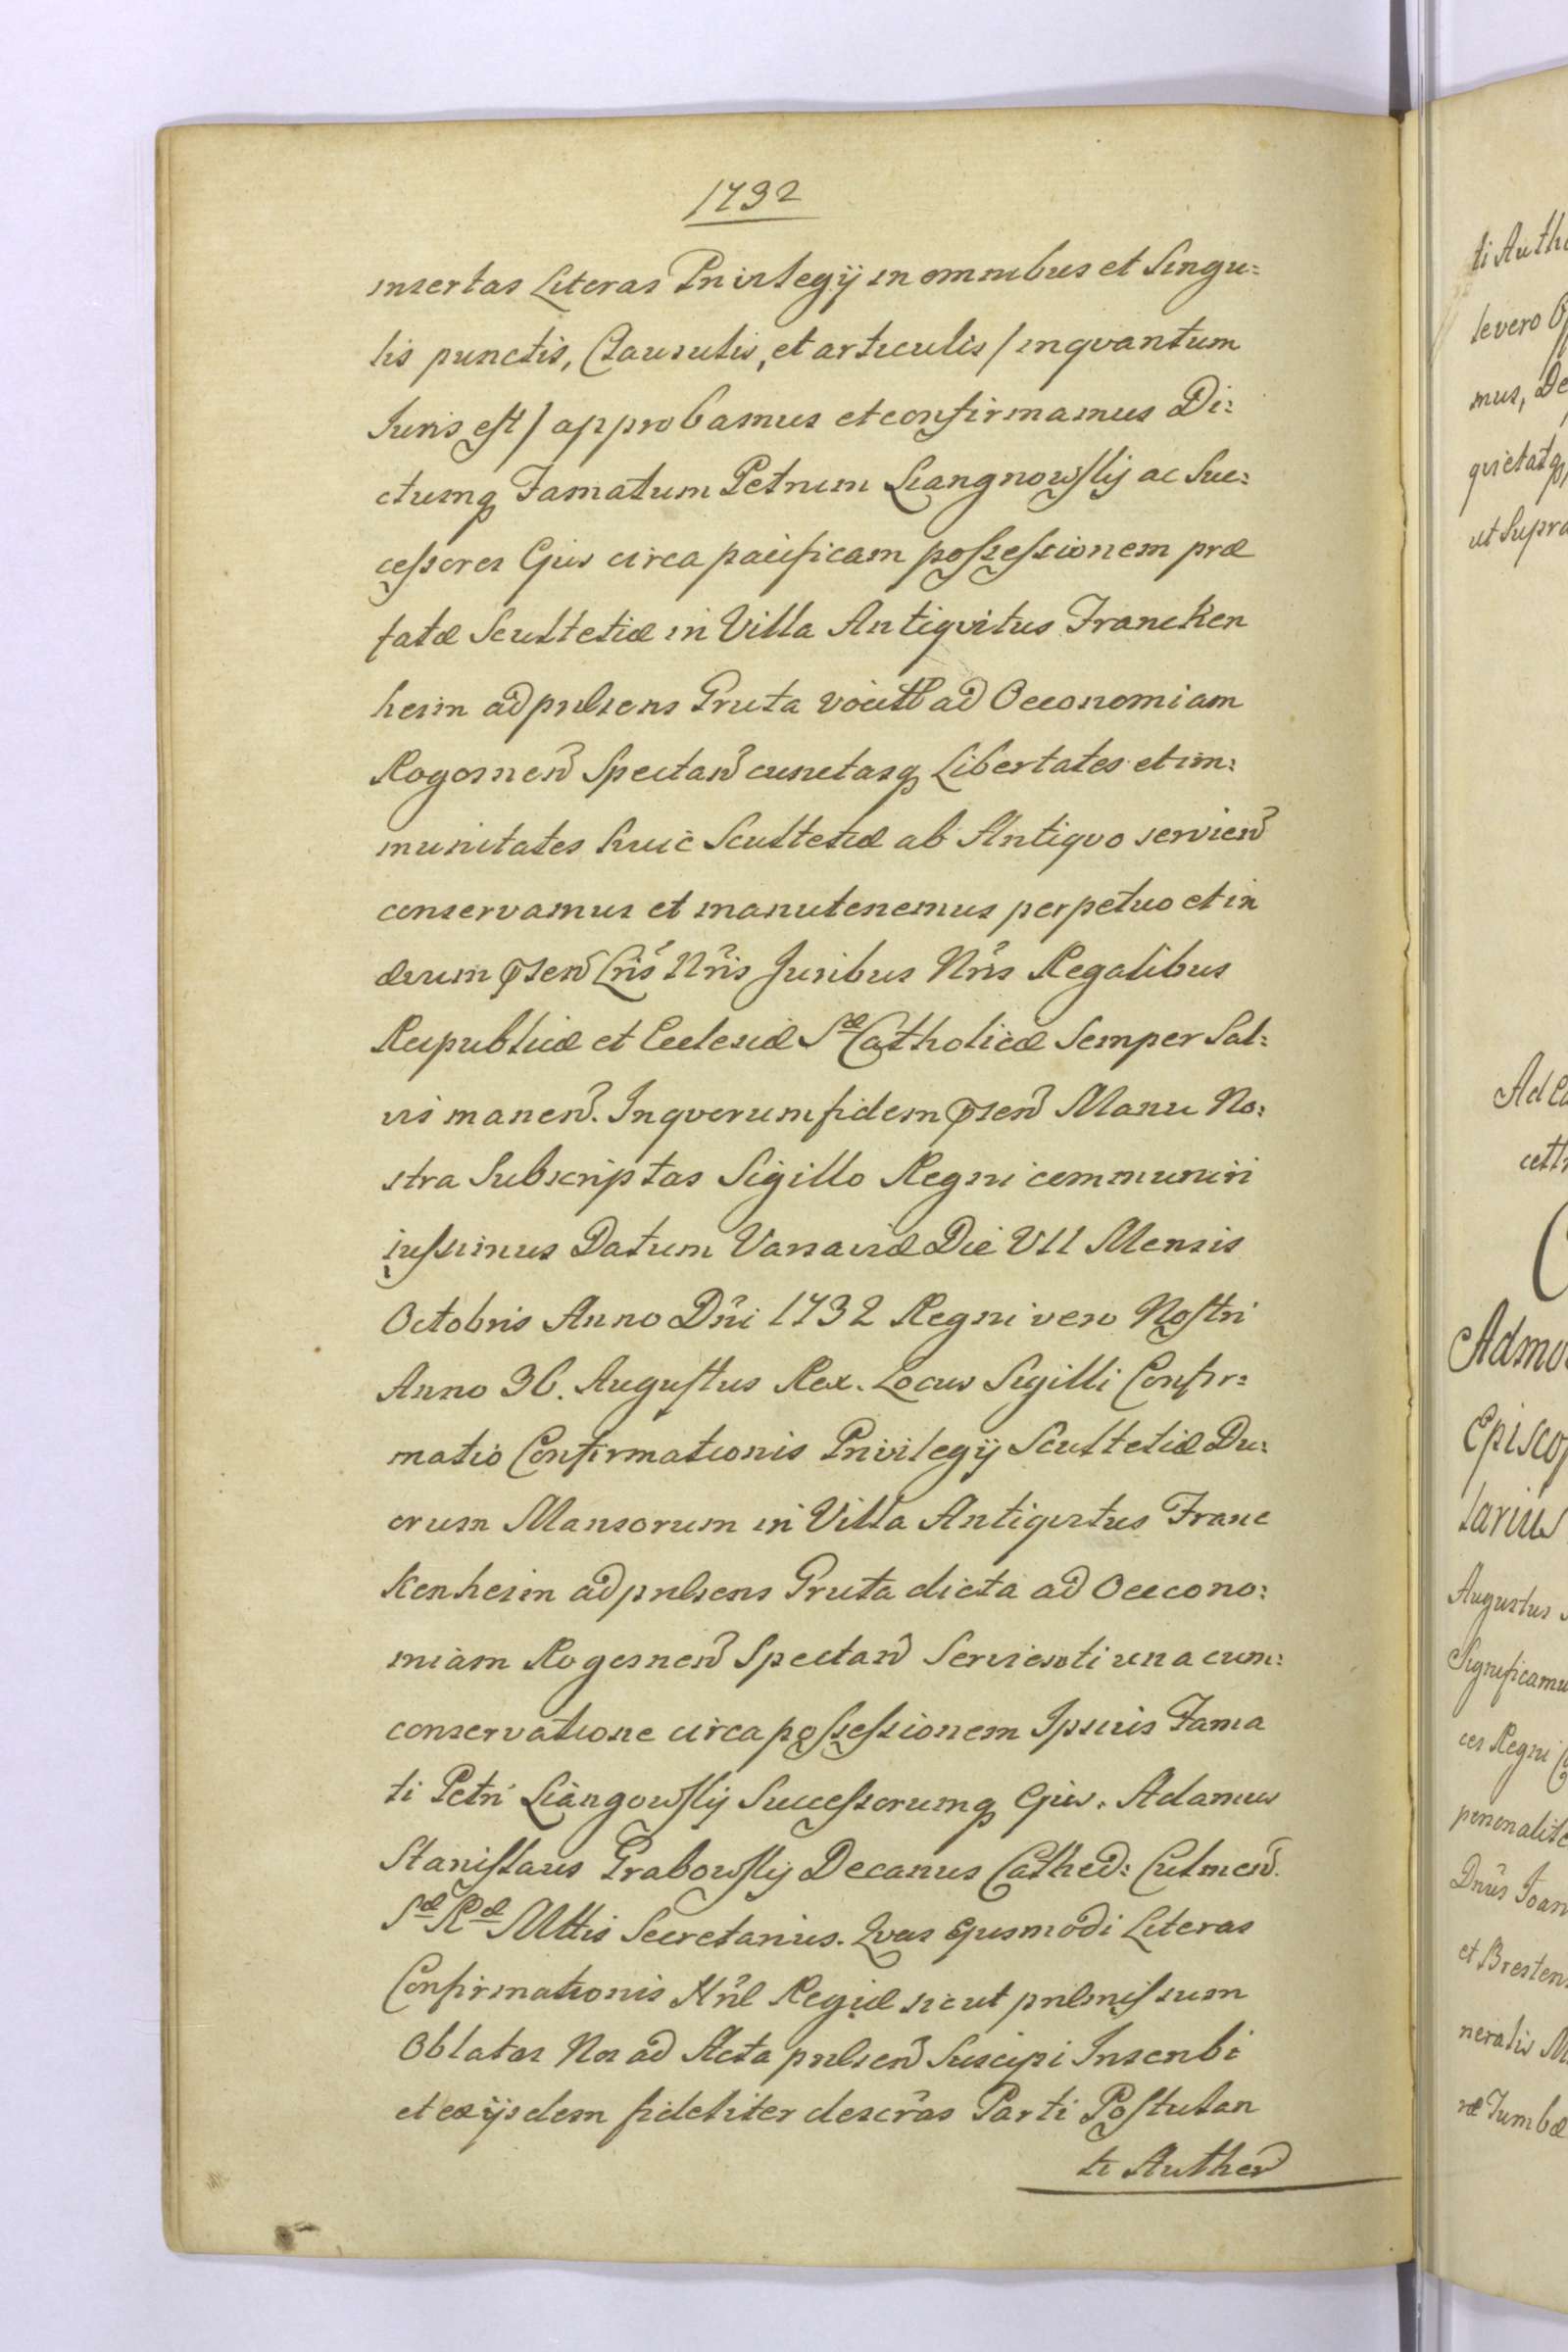 1732
insertas Literas Privilegij in omnibus et Singu:
lis punctis, Clausulis, et articulis / inqvantum
Iuris est / approbamus et confirmamus Di:
ctumq Famatum Petrum Liangnowskij ac Suc:
cessores Ejus circa pacificam possessionem præ
fatæ Scultetiæ in Villa Antiqvitus Francken
heim ad pnlsens Gruta vocitt ad Oeconomiam
Rogosnen Spectan cunctasq Libertates et im:
munitates huic Scultetiæ ab Antiqvo servien
conservamus et manutenemus perpetuo et in
ævum psen Lris Nris Juribus Nris Regalibus
Reipublicæ et Ecclesiæ Sæ Catholicæ Semper Sal:
vis manen. In qvorum fidem psen Manu No:
stra Subscriptas Sigillo Regni communiri
iussimus Datum Varsaviæ Die VII Mensis
Octobris Anno Dni 1732 Regni vero Nostri
Anno 36. Augustus Rex. Locus Sigilli Confir:
matio Confirmationis Privilegij Scultetiæ Du:
orum Mansorum in Villa Antiqvitus Franc
kenheim ad pnlsens Gruta dicta ad Oeecono:
miam Rogosnen Spectan Servienti una cum:
conservatione circa possessionem Ipsius Fama
ti Petri Liangowskij Successorumq Ejus. Adamus
Stanislaus Grabowskij Decanus Cathed: Culmen.
Sæ Ræ Mttis Secretarius. Qvas Ejusmodi Literas
Confirmationis Nræ Regiæ sicut pnlmissum
Oblatas Nos ad Acta pnlsen Suscipi Inscribi
et ex ijsdem fideliter descras Parti Postulan
ti Authen
ti Auth
levero
mus, De
qvietatq
ut Supra
Ad
Admo
Episcop
larius
Augustus
Significamu
ces Regni
personalite
Dnus Joan
et Bresten
neralis M
ræ Tumbæ